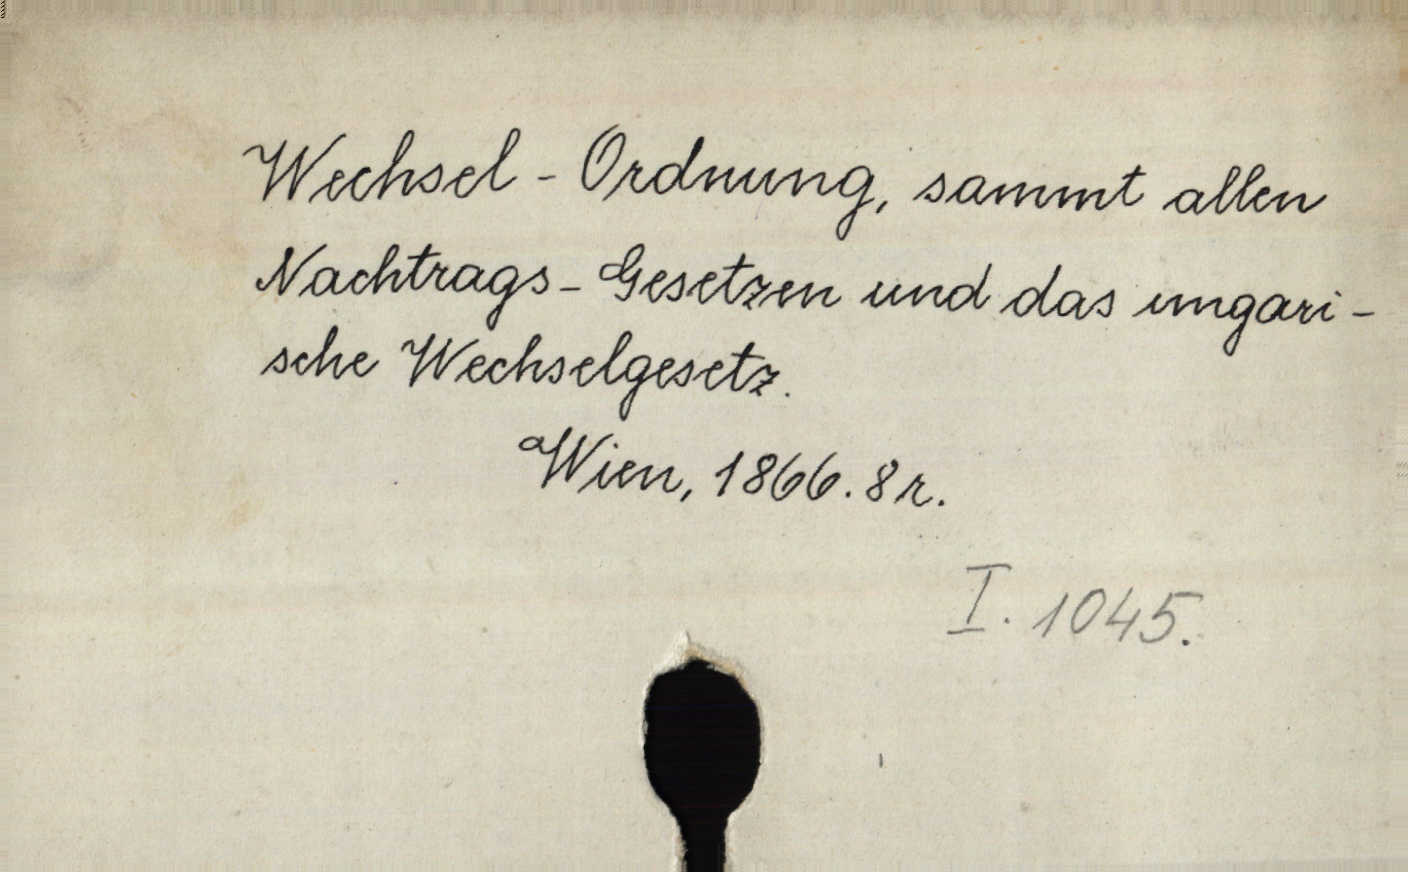 Wechsel - Ordnung, sammt allen
Nachtrags - Gesetzen und das ungari -
sche Wechselgesetz.
Wien, 1866. 8r.
I. 1045.